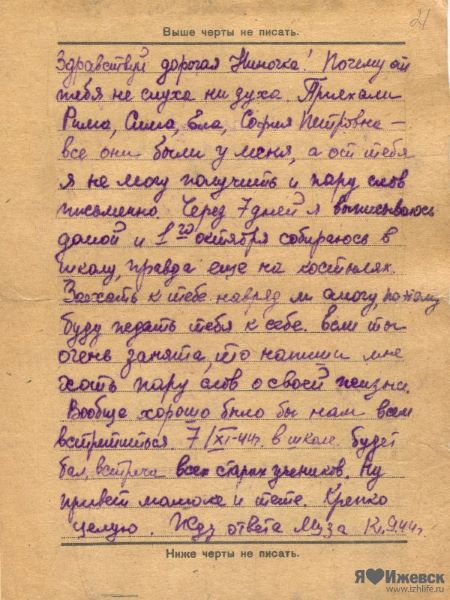 21
Выше черты не писать.
Здравствуй дорогая Ниночка! Почему от
тебя не слуха ни духа. Приехали
Рима, Сима, Ела, София Петровна –
все они были у меня, а от тебя
я не могу получить и пару слов
письменно. Через 7 дней я выписываюсь
домой и 1го октября собираюсь в
школу, правда еще на костылях.
Заехать к тебе навряд ли смогу, поэтому
буду ждать тебя к себе. Если ты
очень занята, то напиши мне
хоть пару слов о своей жизни.
Вообще хорошо было бы нам всем
встретиться. 7/XI-44г. в школе будет
бал, встреча всех старых учеников. Ну
привет мамочке и тете. Крепко
целую. Жду ответа Муза
Ниже черты не писать.
Я Ижевск
www.izhlife.ru